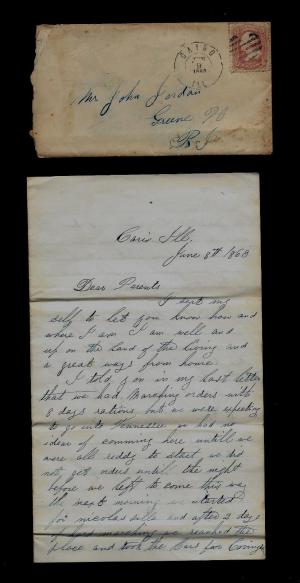 CAIRO
ILL
Mr John Jordan
Greene PO
R.I.
Cairo Ill.
June 8th 1863
Dear Parents
I sept my
self to let you know how and
where I am I am well and
up on the land of the living and
a great ways from home.
I told you in my last letter
that we had Marching orders with
8 days rations but we were expecting
to go into Tennessee we had no
idear of comming here untill we
were all reddy to start we did
not get orders until the night
before we left to come this way
the next morning we started
for nicolas ville and after 2 days
hard marching we reached that
place and took the Cars for Covingt